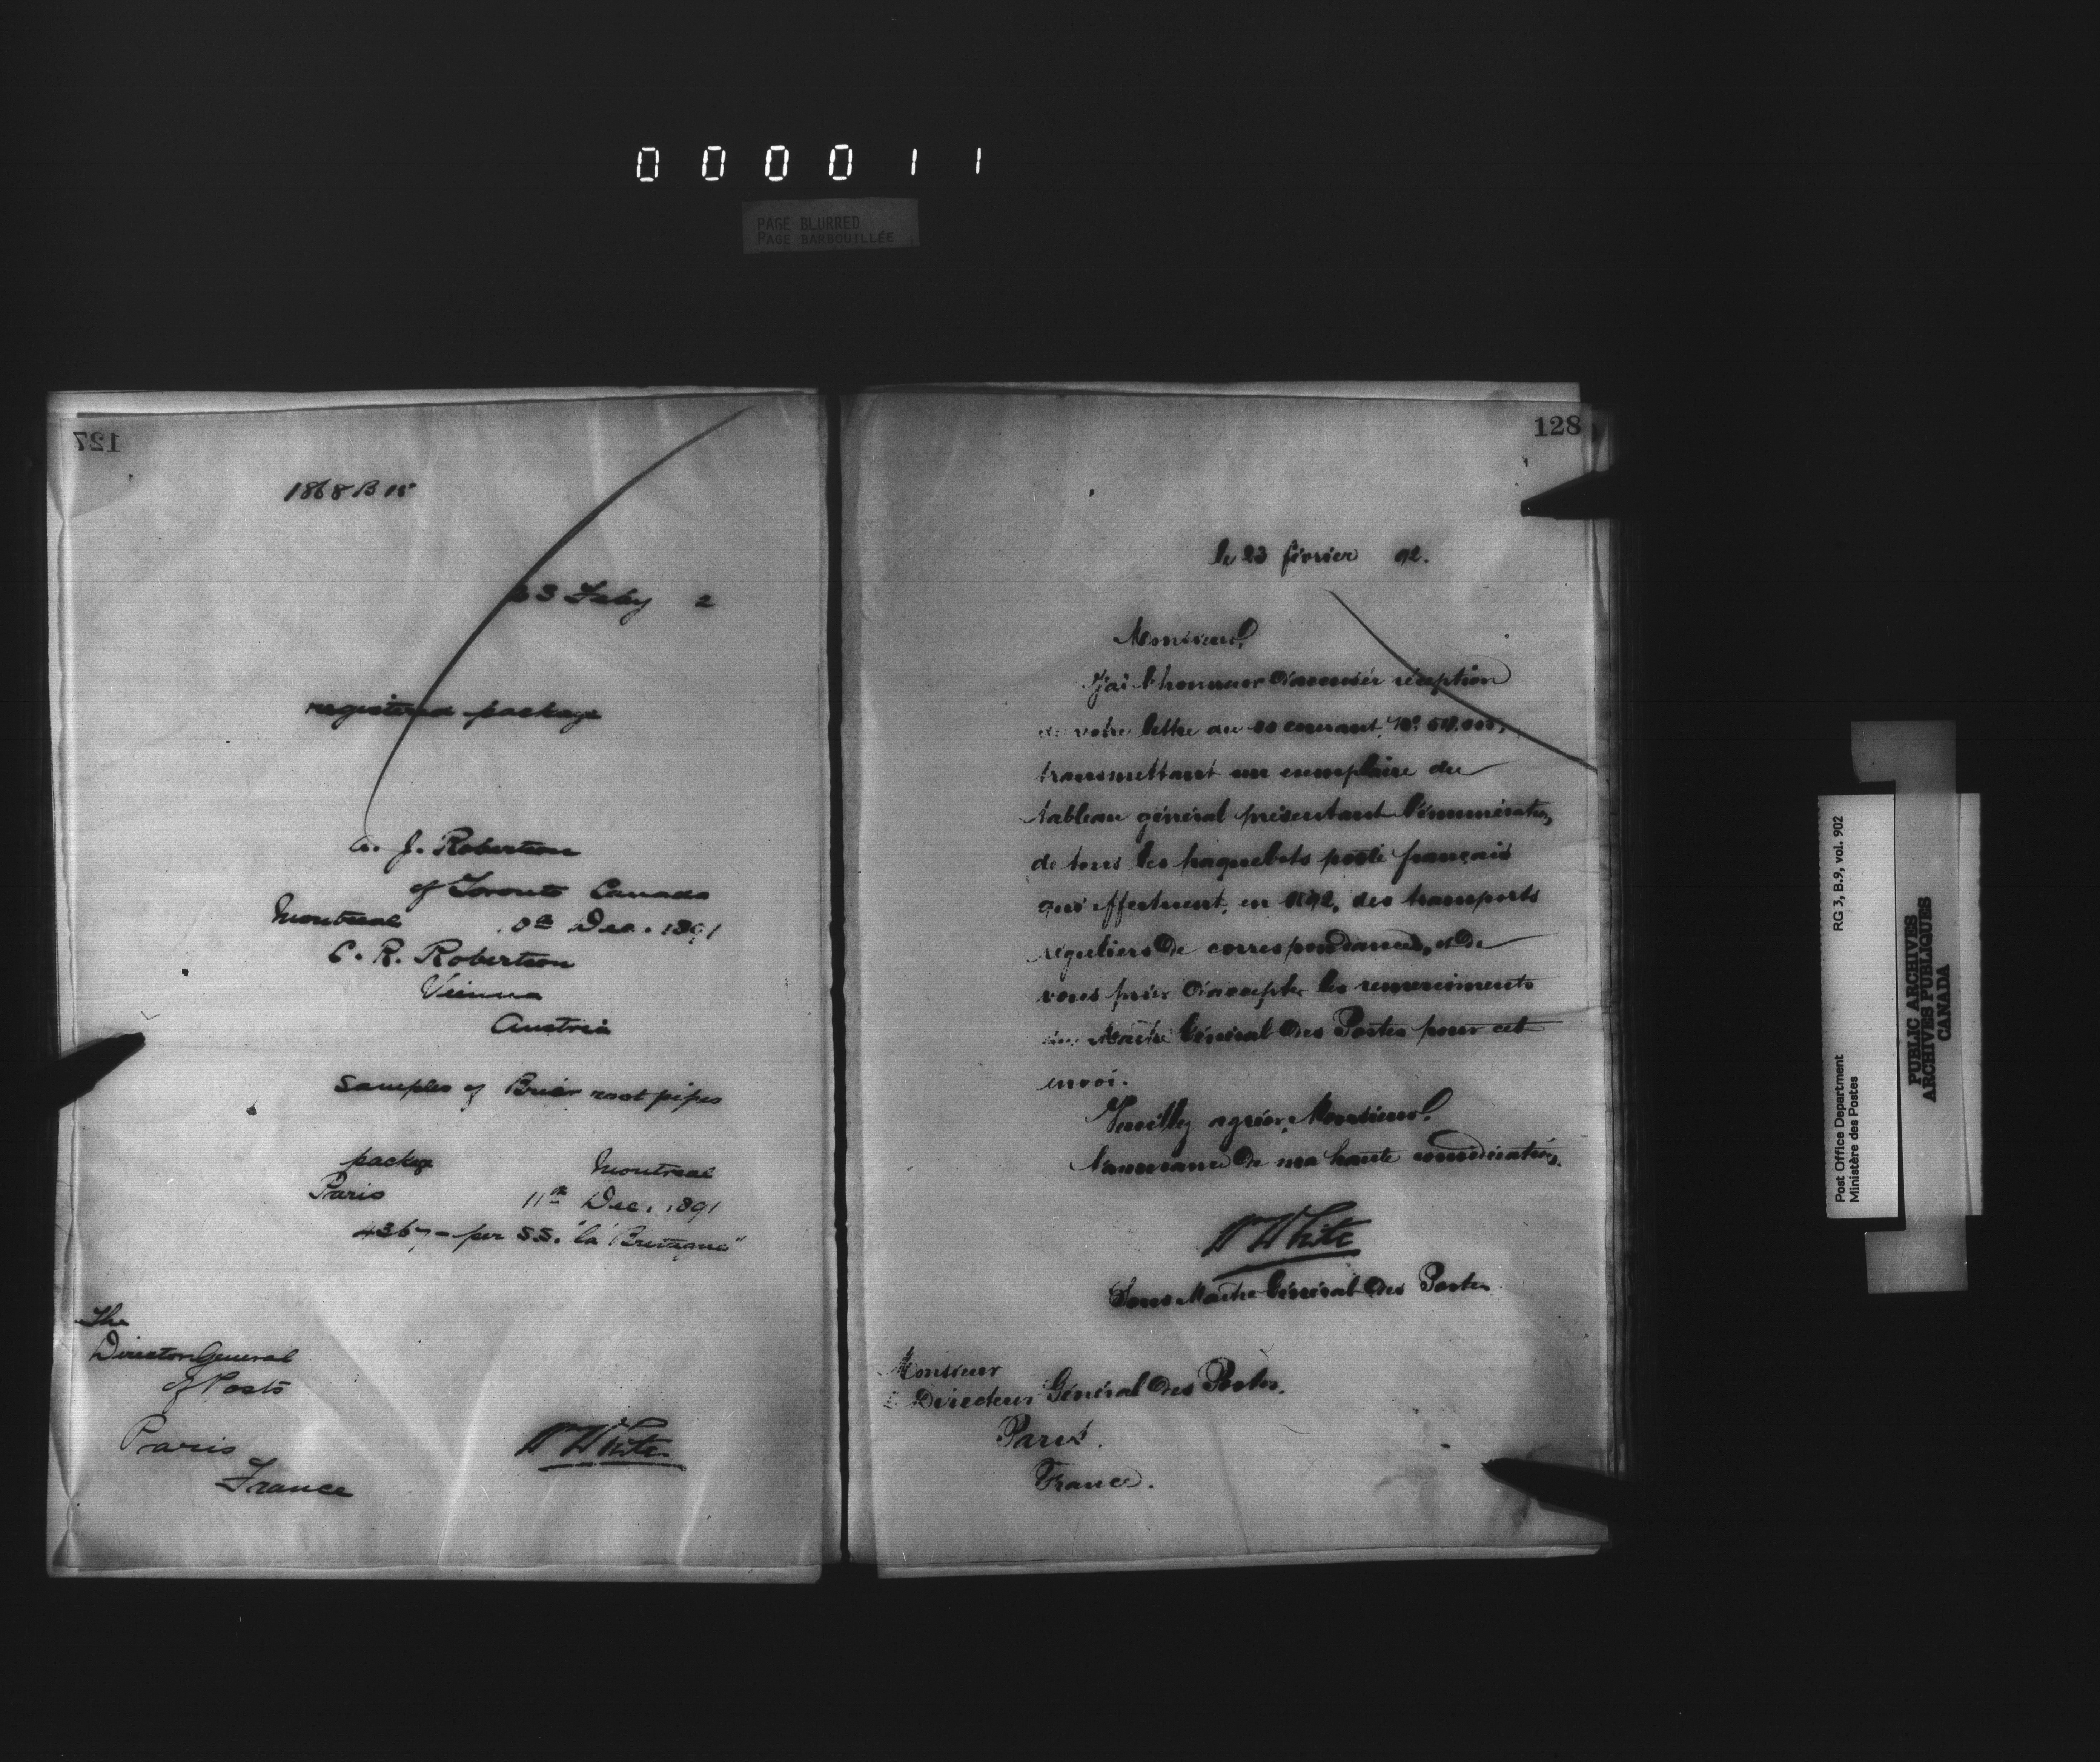 000011
PAGE BLURRED
PAGE BARBOUILLÉE
127
1868 B 15
23 Feby 2
registered package
A. J. Robertson
of Toronto Canada
Montreal Dec. 1891
C. R. Robertson
Vienna
Austria
Samples of Brier root pipes
package Montreal
Paris 11th Dec. 1891
4367 - per S.S. "la Bretagne"
The
Director General
of Posts
Paris
France
W White
128
le 23 février 92.
Monsieur,
J'ai l'honneur d'accuser réception
de votre lettre du courant, No.
transmettant un exemplaire du
tableau général présentant l'énumération
de tous les paquebots poste français
qui effectuent, en 1892, des transports
réguliers de correspondances, et de
vous prier d'accepter les remerciments
du Maître Général des Postes pour cet
envoi.
Veuillez agréer, Monsieur,
l'assurance de ma haute considération.
W White
Sous Maître Général des Postes
Monsieur
le Directeur Général des Postes.
Paris.
France.
Post Office Department RG 3, B.9, vol. 902
Ministère des Postes
PUBLIC ARCHIVES
ARCHIVES PUBLIQUES
CANADA